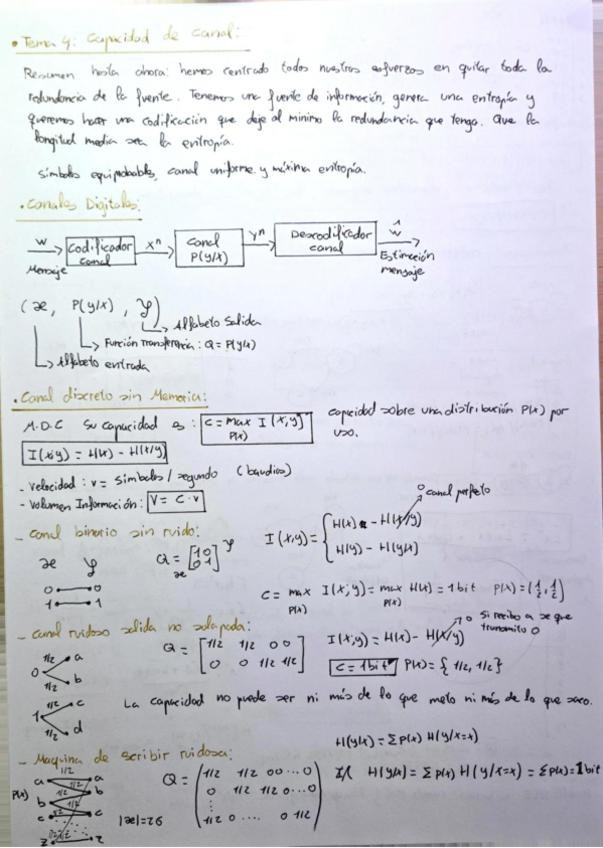 • Tema 4: Capacidad de Canal:
Resumen hasta ahora: hemos centrado todos nuestros esfuerzos en quitar toda la
redundancia de la fuente. Tenemos una fuente de información, genera una entropía y
queremos hacer una codificación que deje al mínimo la redundancia que tenga. Que la
longitud media sea la entropía.
símbolos equiprobables, canal uniforme y máxima entropía.
• Canales Digitales:
W Codificador canal X^n Canal P(y/x) Y^n Descodificador canal Ŵ
Mensaje Estimación mensaje
(æ, P(y/x), Y)
Alfabeto Salida
Función Transferencia: Q = P(y/x)
Alfabeto entrada
• Canal discreto sin Memoria:
M.D.C Su capacidad es: C = max P(x) I(x;y) capacidad sobre una distribución P(x) por uso.
I(x;y) = H(x) - H(x/y)
- Velocidad: v = símbolos / segundo (baudios)
- Volumen Información: V = C · v
- Canal binario sin ruido:
æ Y Q = [1 0 0 1] Y æ I(x;y) = { H(x) - H(x/y) 0 canal perfecto
H(y) - H(y/x)
0 0
1 1
C = max P(x) I(x;y) = max P(x) H(x) = 1 bit P(x) = (1/2, 1/2)
- Canal ruidoso salida no solapada:
Q = [1/2 1/2 0 0
0 0 1/2 1/2] I(x;y) = H(x) - H(x/y) 0 Si recibo a se que transmito 0
0 1/2 a 1/2 b
1 1/2 c 1/2 d
C = 1 bit P(x) = {1/2, 1/2}
La capacidad no puede ser ni más de lo que meto ni más de lo que saco.
H(y/x) = Σ P(x) H(y/x=x)
- Maquina de escribir ruidosa:
P(x) a b c z 1/2 1/2 1/2 a b c z |æ|=26
Q = (1/2 1/2 0 0 ... 0
0 1/2 1/2 0 ... 0
⋮
1/2 0 .... 0 1/2)
H(y/x) = Σ P(x) H(y/x=x) = Σ P(x) = 1 bit